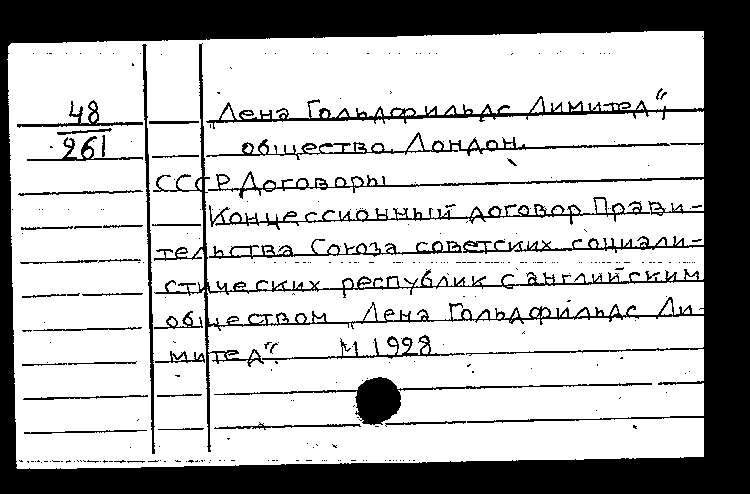 48
261
„Лена Гольдфильдс Лимитед“,
общество. Лондон.
СССР Договоры
Концессионный договор Прави-
тельства Союза советских социали-
стических республик с английским
обществом „Лена Гольдфильдс Ли-
митед“. М 1928